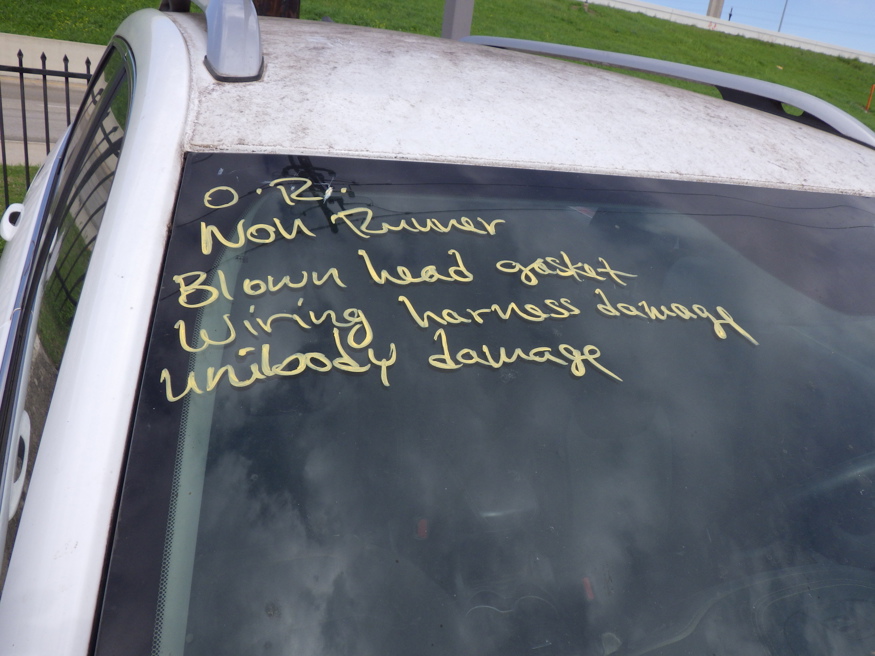 O.R.
Non Runner
Blown head gasket
Wiring harness damage
unibody damage